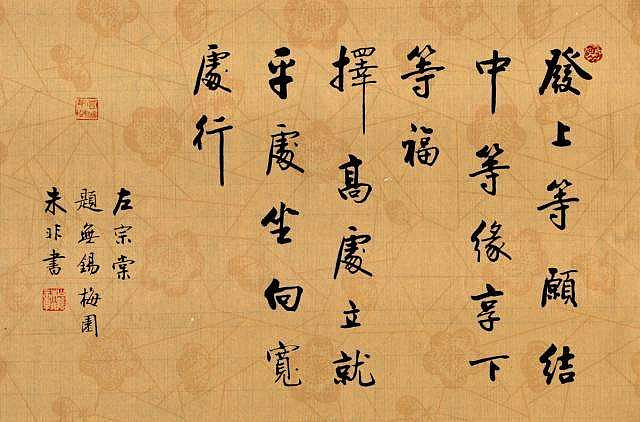 發上等願結
中等緣享下
等福
擇高處立就
平處坐向寬
處行
左宗棠
題無錫梅園
未非書